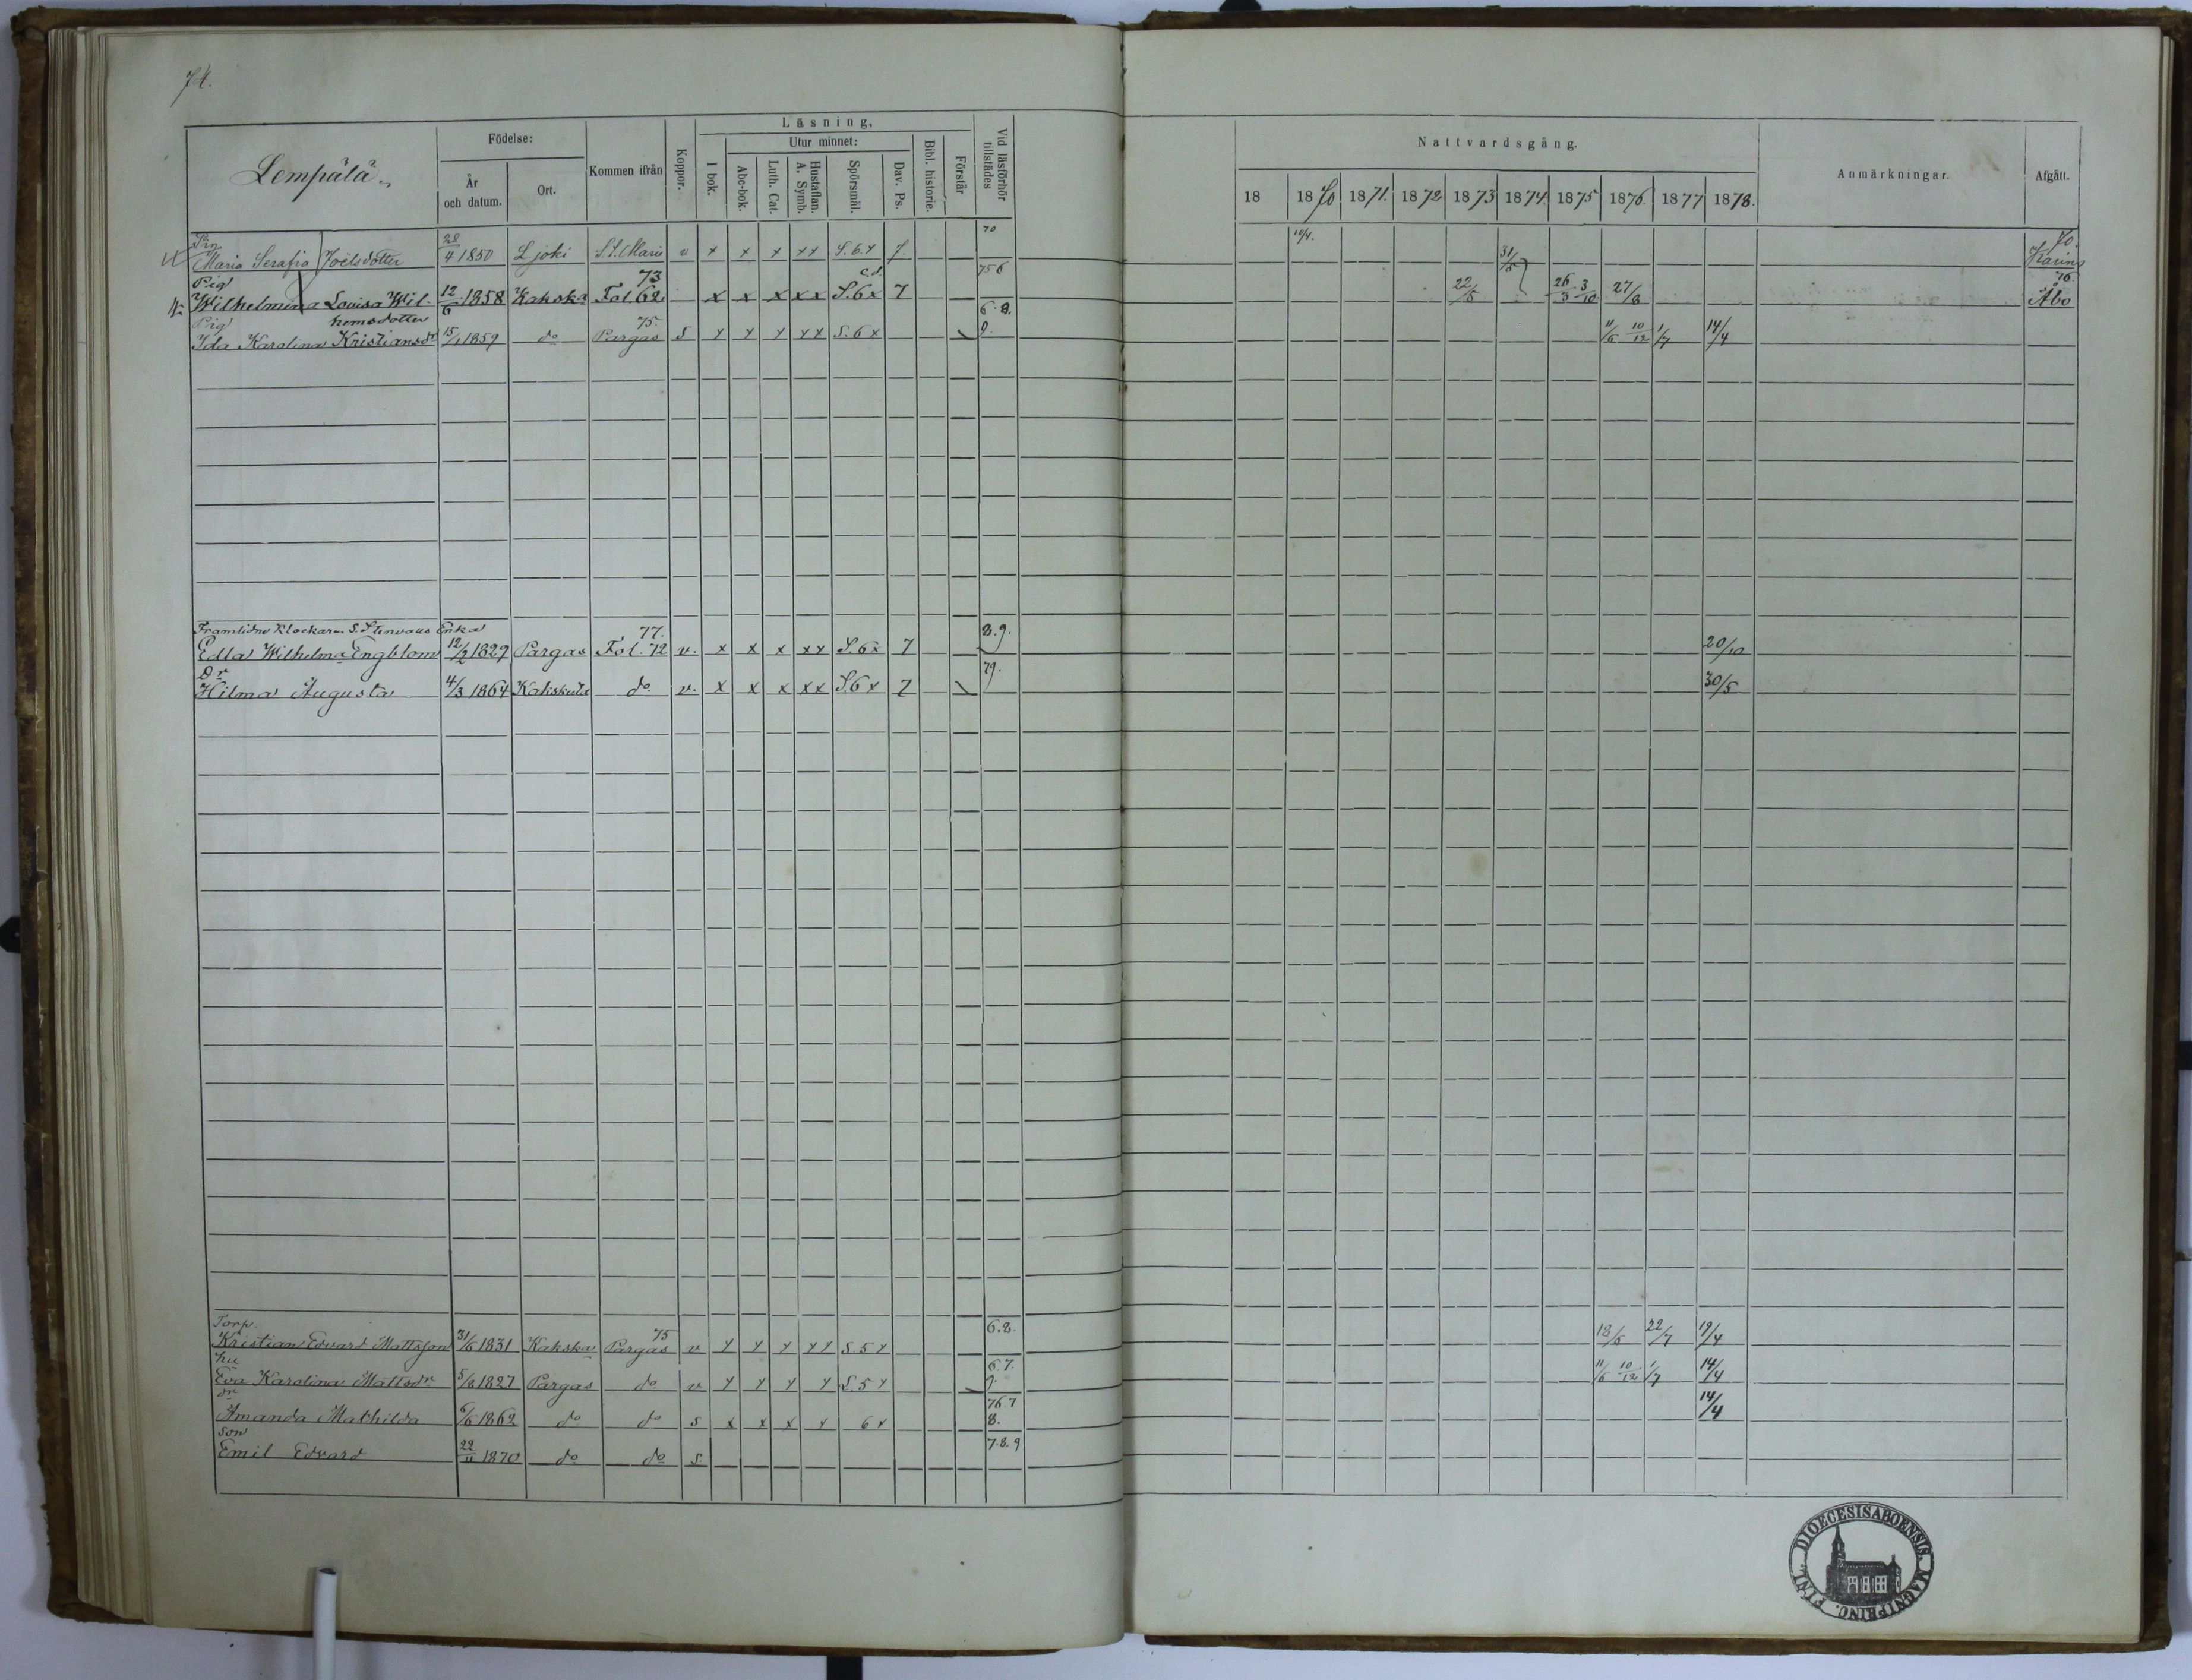 74.
Lempälä.
Födelse:
År och datum.
Ort.
Kommen ifrån
Koppor.
Läsning,
I bok.
Utur minnet:
Abc-bok.
Luth. Cat.
Hustaflan. A. Symb.
Spörsmål.
Dav. Ps.
Bibl. historie.
Förstår
Vid läsförhör tillstädes
Nattvardsgång.
18 1870 1871. 1872 1873 1874. 1875 1876. 1877 1878.
Anmärkningar.
Afgått.
Maria Serafia Joelsdotter 28/4 1850 Ljoki S:t Marie v x x x xx S. 6. x 7. 70 10/4. 31/5 70. Karins
Pig
Wilhelmina Lovisa Wil- hemsdotter 12/6 1858 Kakska 73 Fol. 62 x x x xx c.d. S. 6 x 7 75 6 22/5 26/3 3/10 27/8 76. Åbo
Pig
Ida Karolina Kristiansdr 15/1 1859 do 75. Pargas S x x x xx S. 6 x 6. 8. 9. 11/6 10/12 1/7 14/4
Framlidne Klockaren S. Stenvalls Enka
Edla Wilhelma Engblom 12/2 1829 Pargas 77. Fol. 72 v. x x x xx S. 6 x 7 8. 9. 20/10
Dr
Hilma Augusta 4/3 1864 Kakskula do v. x x x xx S. 6 x 7 79. 30/5
Torp.
Kristian Edvard Mattsson 31/6 1831 Kakska 75 Pargas v x x x xx S. 5 x 6. 8. 18/6 22/7 19/4
hu
Eva Karolina Mattsdr 5/8 1827 Pargas do v x x x x S. 5 x 6. 7. 9. 11/6 10/12 1/7 14/4
dr
Amanda Mathilda 6/6 1862 do do s x x x x 6 x 76 7 8. 14/4
son
Emil Edvard 22/11 1870 do do s 7. 8. 9
DIOECESIS ABOENSIS. MAGNI PRINC. FINL.